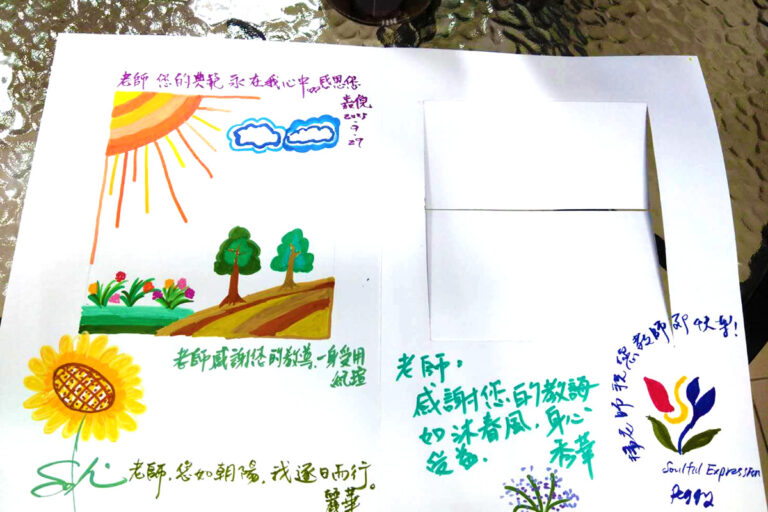 老師 您的典範 永在我心中 感恩您
嘉倪
2025
9.27
老師感謝您的教導，一身受用
老師。
感謝您的教誨
如沐春風，身心
受益．
秀華
老師祝您教師節快樂！
Soulful Expression
Peggy
老師，您如朝陽，我逐日而行。
麗華